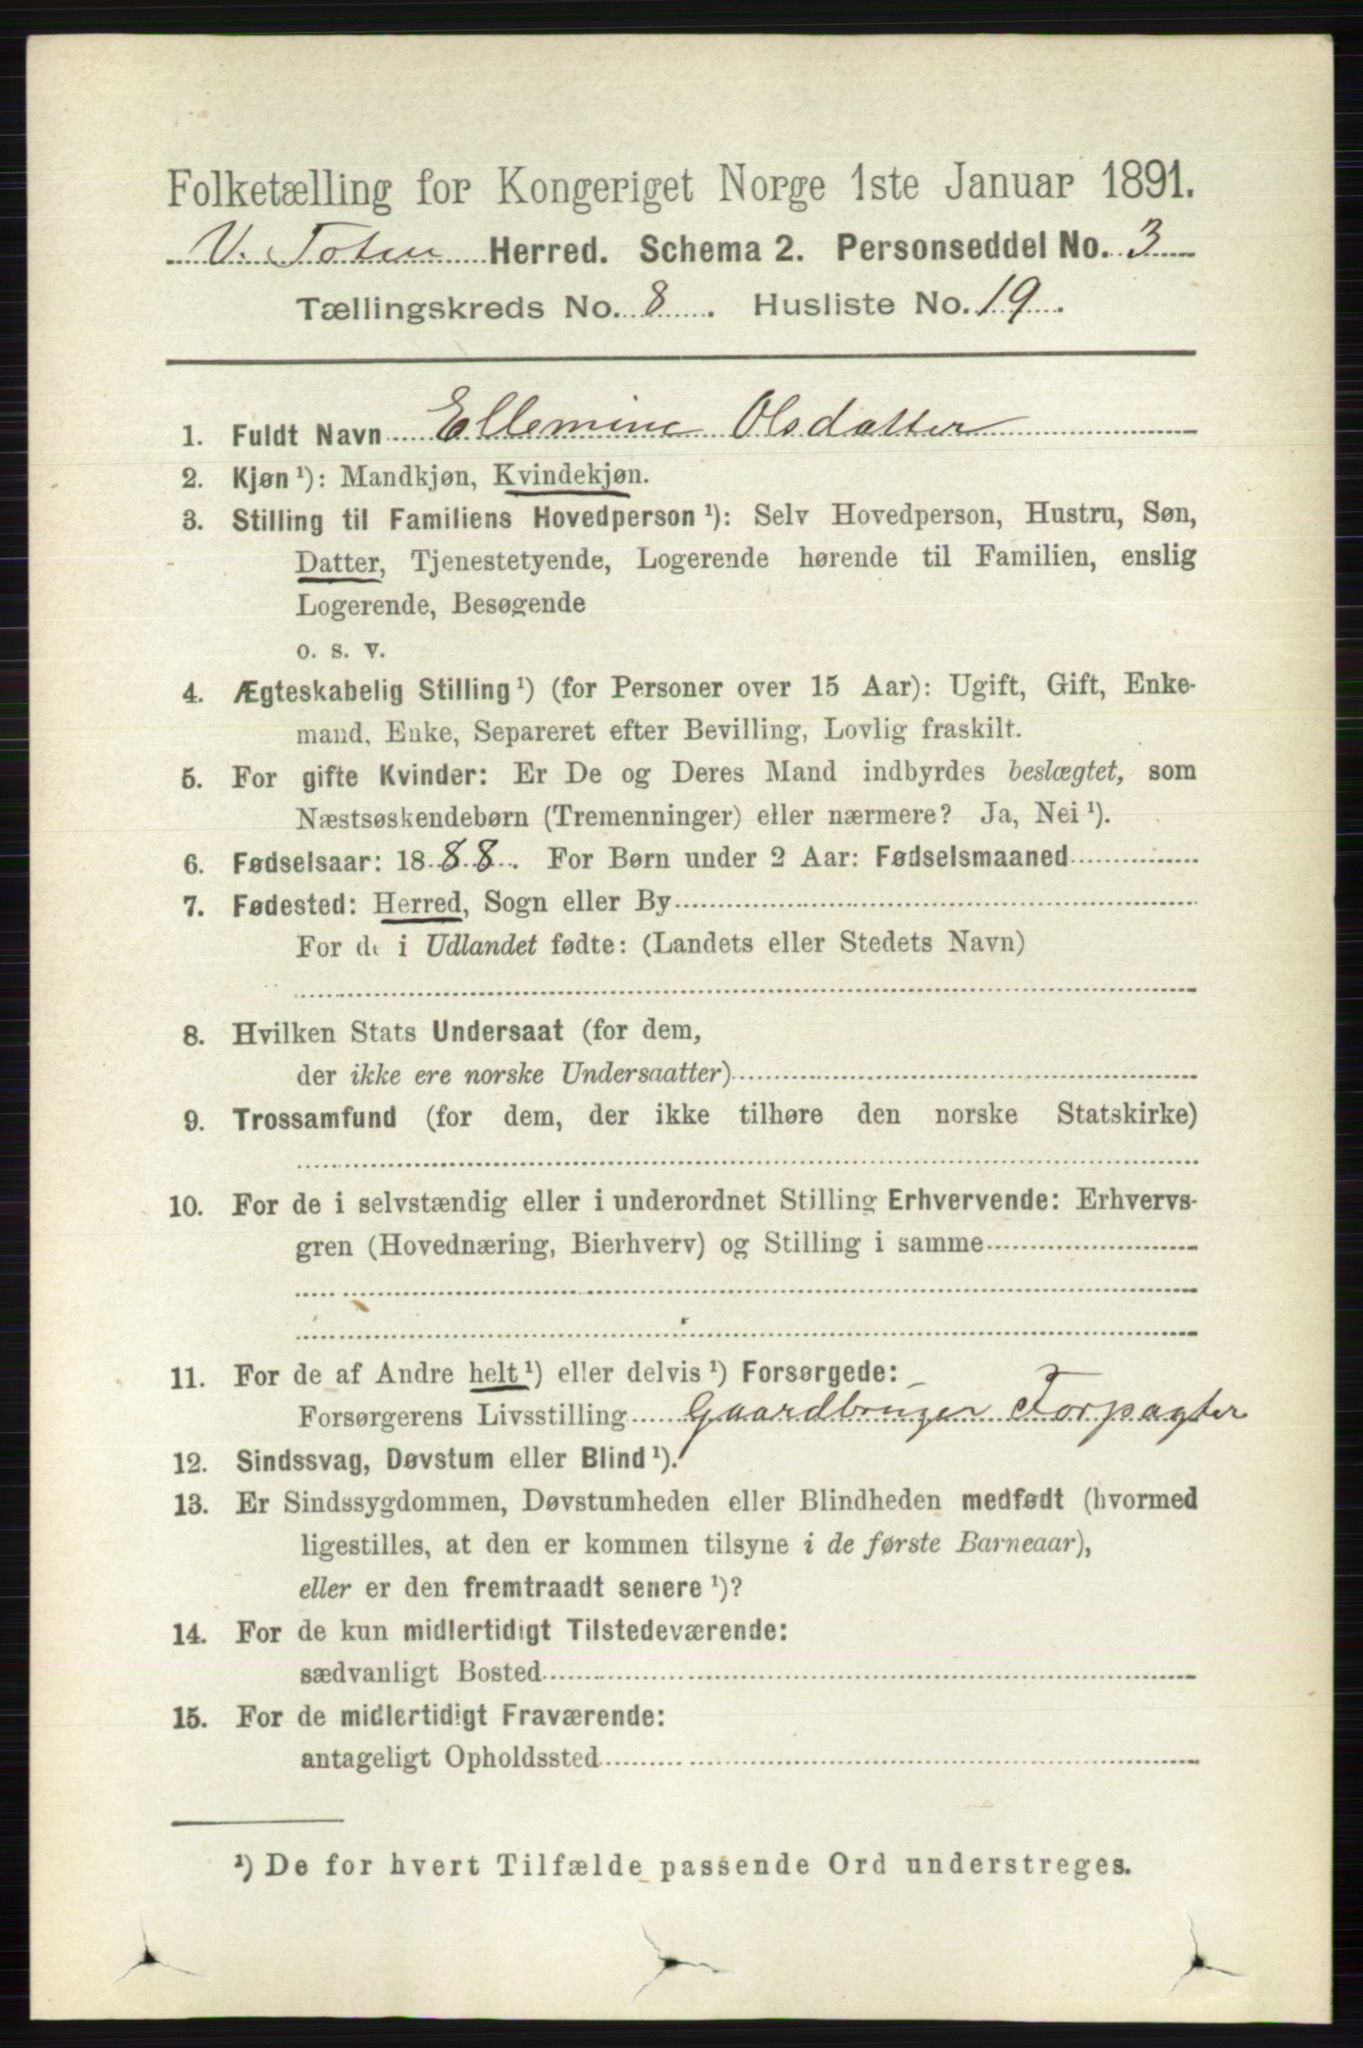 Folketælling for Kongeriget Norge 1ste Januar 1891.
V. Toten Herred. Schema 2. Personseddel No. 3
Tællingskreds No. 8. Husliste No. 19.
1. Fuldt Navn Ellemine Olsdatter
2. Kjøn ¹): Mandkjøn, Kvindekjøn.
3. Stilling til Familiens Hovedperson ¹): Selv Hovedperson, Hustru, Søn,
Datter, Tjenestetyende, Logerende hørende til Familien, enslig
Logerende, Besøgende
o. s. v.
4. Ægteskabelig Stilling ¹) (for Personer over 15 Aar): Ugift, Gift, Enke-
mand, Enke, Separeret efter Bevilling, Lovlig fraskilt.
5. For gifte Kvinder: Er De og Deres Mand indbyrdes beslægtet, som
Næstsøskendebørn (Tremenninger) eller nærmere? Ja, Nei ¹).
6. Fødselsaar: 1888. For Børn under 2 Aar: Fødselsmaaned
7. Fødested: Herred, Sogn eller By
For de i Udlandet fødte: (Landets eller Stedets Navn)
8. Hvilken Stats Undersaat (for dem,
der ikke ere norske Undersaatter)
9. Trossamfund (for dem, der ikke tilhøre den norske Statskirke)
10. For de i selvstændig eller i underordnet Stilling Erhvervende: Erhvervs-
gren (Hovednæring, Bierhverv) og Stilling i samme
11. For de af Andre helt ¹) eller delvis ¹) Forsørgede:
Forsørgerens Livsstilling Gaardbruger Forpagter
12. Sindssvag, Døvstum eller Blind ¹).
13. Er Sindssygdommen, Døvstumheden eller Blindheden medfødt (hvormed
ligestilles, at den er kommen tilsyne i de første Barneaar),
eller er den fremtraadt senere ¹)?
14. For de kun midlertidigt Tilstedeværende:
sædvanligt Bosted
15. For de midlertidigt Fraværende:
antageligt Opholdssted
¹) De for hvert Tilfælde passende Ord understreges.